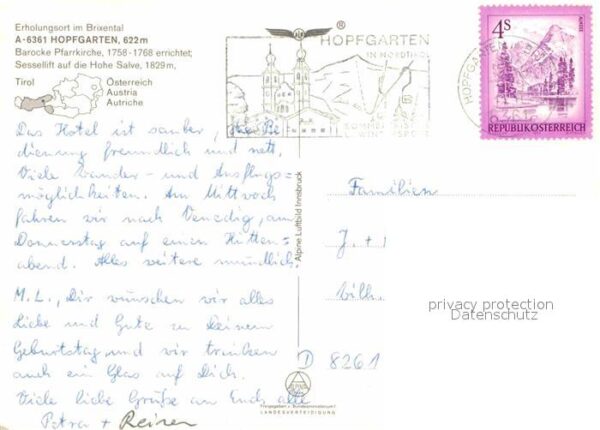 Erholungsort im Brixental
A-6361 HOPFGARTEN, 622m
Barocke Pfarrkirche, 1758-1768 errichtet;
Sessellift auf die Hohe Salve, 1829m,
Tirol
Österreich
Austria
Autriche
HOPFGARTEN
IN NORDTIROL
SOMMERFRISCHE
WINTERSPORT
HOPFGARTEN
4S
REPUBLIK ÖSTERREICH
Das Hotel ist sauber, die Be
dienung freundlich und nett.
Viele Wander- und Ausflugs=
möglichkeiten. Am Mittwoch
fahren wir nach Venedig, am
Donnerstag auf einen Hütten=
abend. Alles weitere mündlich.
M.L., Dir wünschen wir alles
Liebe und Gute zu Deinem
Geburtstag und wir trinken
auch ein Glas auf Dich.
Viele liebe Grüße an Euch alle
Petra +
Alpine Luftbild Innsbruck
Freigegeben v. Bundesministerium f.
LANDESVERTEIDIGUNG
Familien
J. + 1
Willi.
D 8261
privacy protection
Datenschutz